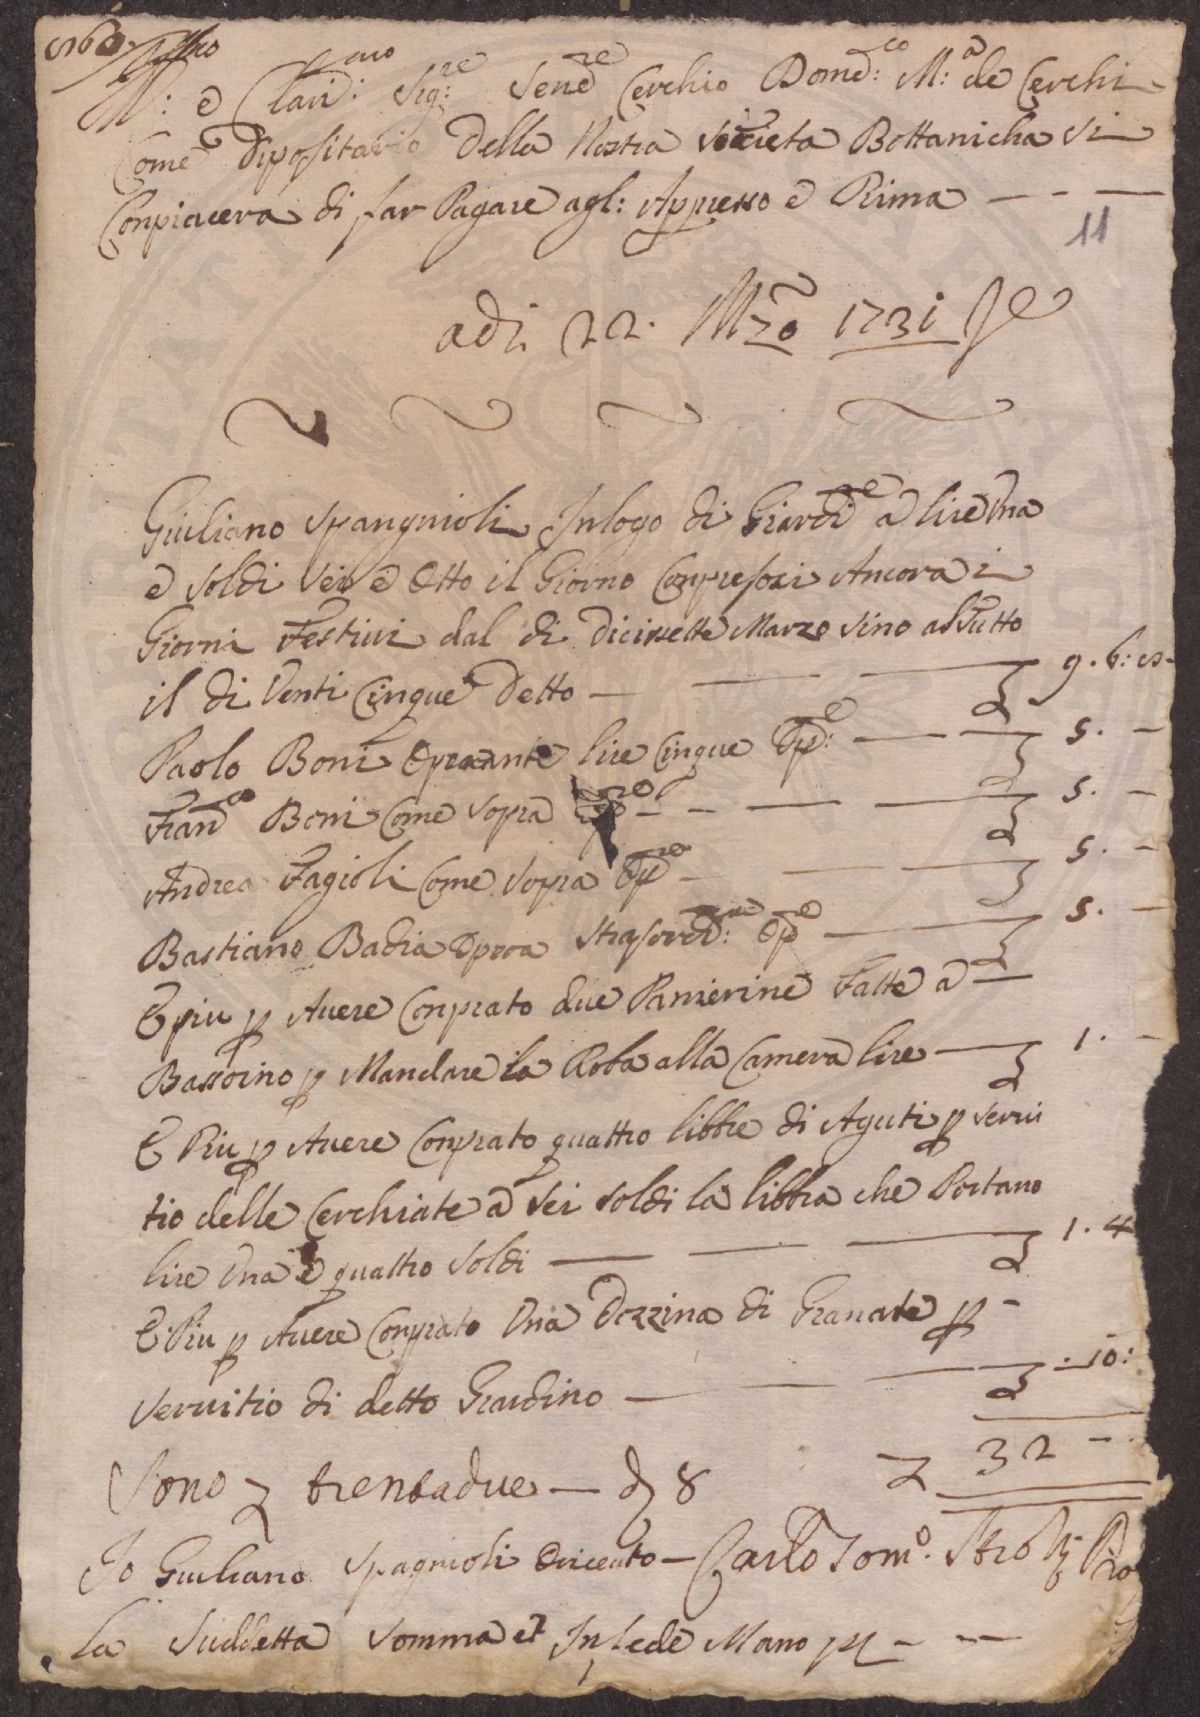 Ill: e Clari:mo Sig:re Senre Cerchio Dome:co M:a de Cerchi
Come Dipositario della Nostra Società Bottanicha Si
Conpiacera di far Pagare agl: Appresso e Prima
11
adi 22. Mzo 1731
Giuliano Spangnioli Inlogo di Giardi.e a lire Una
e Soldi Sei e Otto il Giorno Conpresoxi Ancora i
Giorni Festiui dal di dicissette Marzo Sino alSutto
il di Venti Cinque Detto 9. 6: 8
Paolo Boni Operante lire Cinque Op:e 5. -
Franco Boni Come Sopra 5. -
Andrea Fagioli Come Sopra Opre 5. -
Bastiano Badia Opera Straserd:ma Ope 5. -
E piu p Auere Conprato due Panierine Fatte a
Bassoino p Mandare la Roba alla Camera lire 1. -
E Piu p Auere Conprato quattro libbre di Aguti p Serui
tio delle Cerchiate a Sei Soldi la libbra che Portano
lire Una e quattro Soldi 1. 4
E Piu p Auere Conprato Una Dozzina di Granate p
Seruitio di detto Giardino . 10:
32 -
Sono trentadue 8
Io Giuliano Spagnioli Oriceuto Carlo Tomo. Strozzi Pro
la Suddetta Somma et In fede Mano pp